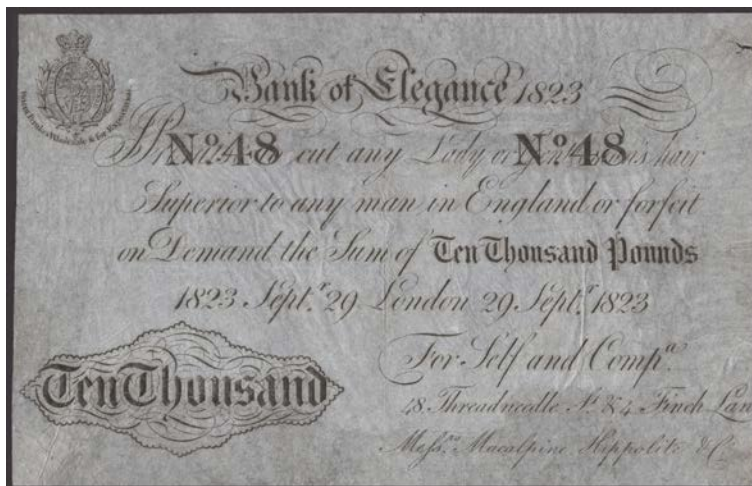 Bank of Elegance 1823
I Promise to cut any Lady or Gentleman's hair
No 48 No 48
Superior to any man in England or forfeit
on Demand the Sum of Ten Thousand Pounds
1823 Septr. 29 London 29 Septr. 1823
For Self and Compa.
Ten Thousand
48 Threadneedle St. & 4 Finch Lan
Messrs. Macalpine Hippolite & Co.